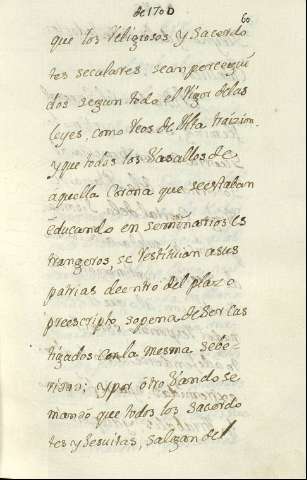 de 1700
60
que los religiosos y Sacerdo
tes seculares, sean persegui
dos segun todo el rigor de las
leyes, como reos de Alta traizion.
y que todos los Vasallos de
aquella Corona que se estaban
educando en seminarios es
trangeros se restituian a sus
patrias deentro del plazo
preescripto, sopena de Ser cas
tigados con la mesma sebe-
ridad; y por otro Vando se
mando que todos los Sacerdo
tes y Jesuitas, salgan del